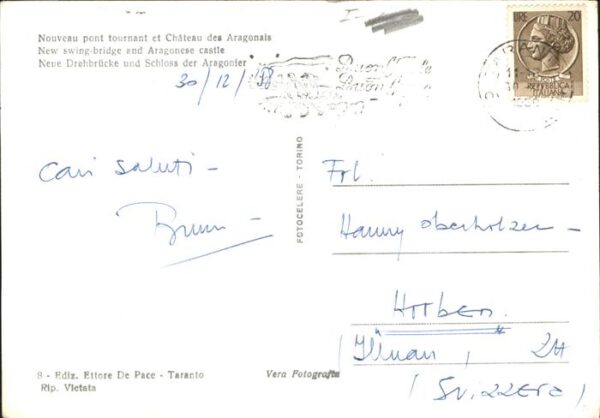 Nouveau pont tournant et Château des Aragonais
New swing-bridge and Aragonese castle
Neue Drehbrücke und Schloss der Aragonier
30/12/58
LIRE 20
REPUBBLICA
ITALIANA
Cari saluti -
FOTOCELERE - TORINO
Frl.
Hanny Oberholzer -
Hittben
(Illnau, ZH
(Svizzera)
8 - Ediz. Ettore De Pace - Taranto
Rip. Vietata
Vera Fotografia